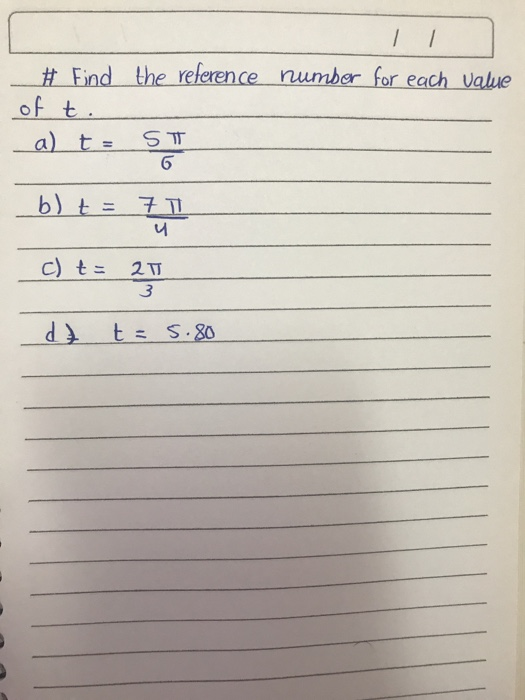 / /
# Find the reference number for each value
of t.
a) t = 5π/6
b) t = 7π/4
c) t = 2π/3
d) t = 5.80